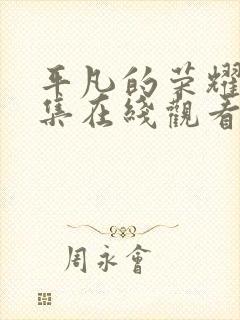 平凡的荣耀
集在綫觀看
周永會